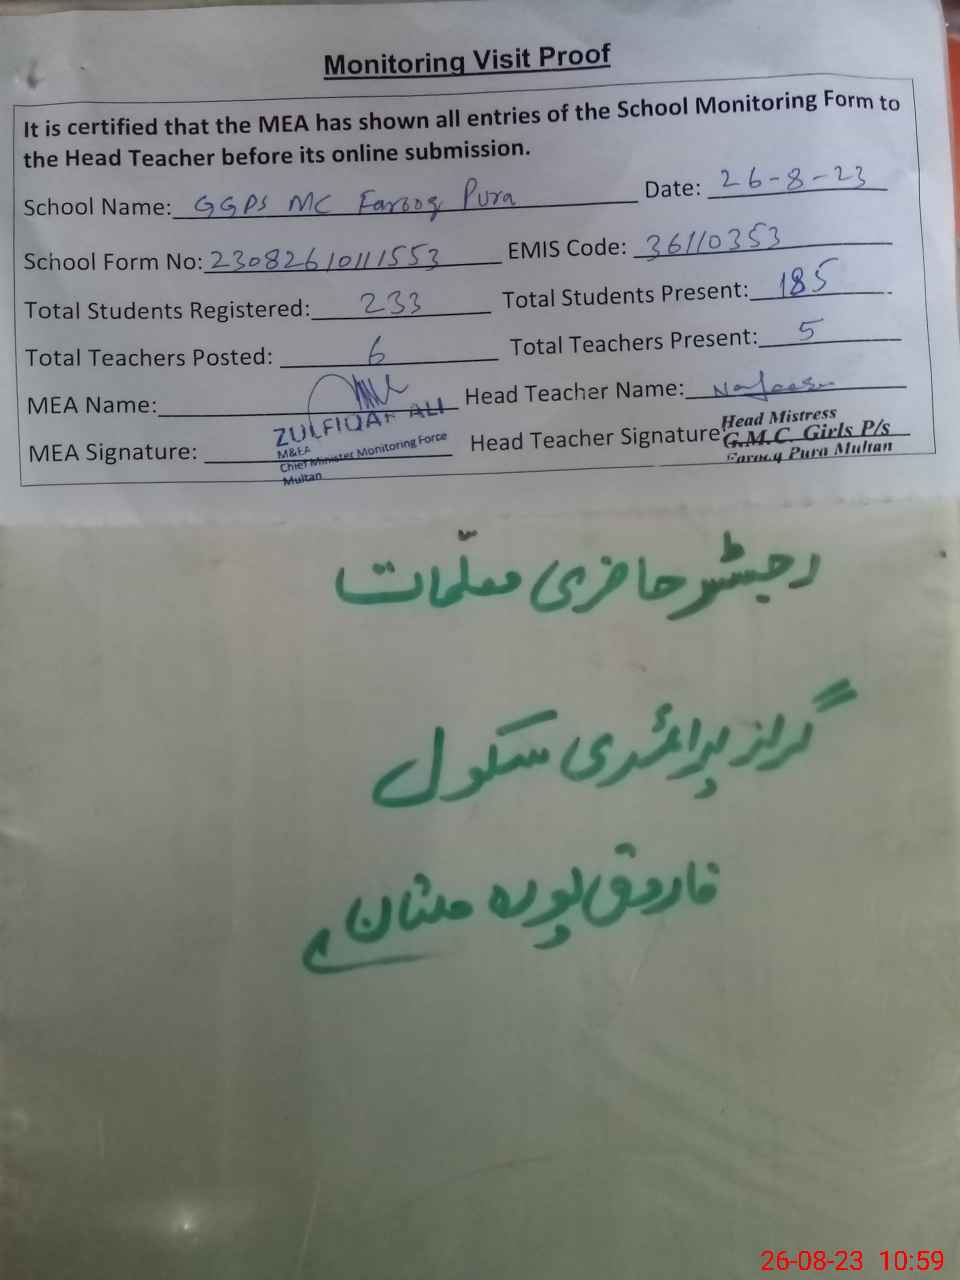 Monitoring Visit Proof
It is certified that the MEA has shown all entries of the School Monitoring Form to
the Head Teacher before its online submission.
School Name: GGPS MC Farooq Pura Date: 26-8-23
School Form No: 23082610111553 EMIS Code: 36110353
Total Students Registered: 233 Total Students Present: 185
Total Teachers Posted: 6 Total Teachers Present: 5
MEA Name: Head Teacher Name:
MEA Signature: ZULFIQAR ALI Head Teacher Signature Head Mistress
M&EA G.M.C. Girls P/s
Chief Minister Monitoring Force Farooq Pura Multan
Multan
رجسٹر حاضری معلّمات
گرلز پرائمری سکول
فاروق پورہ ملتان
26-08-23 10:59